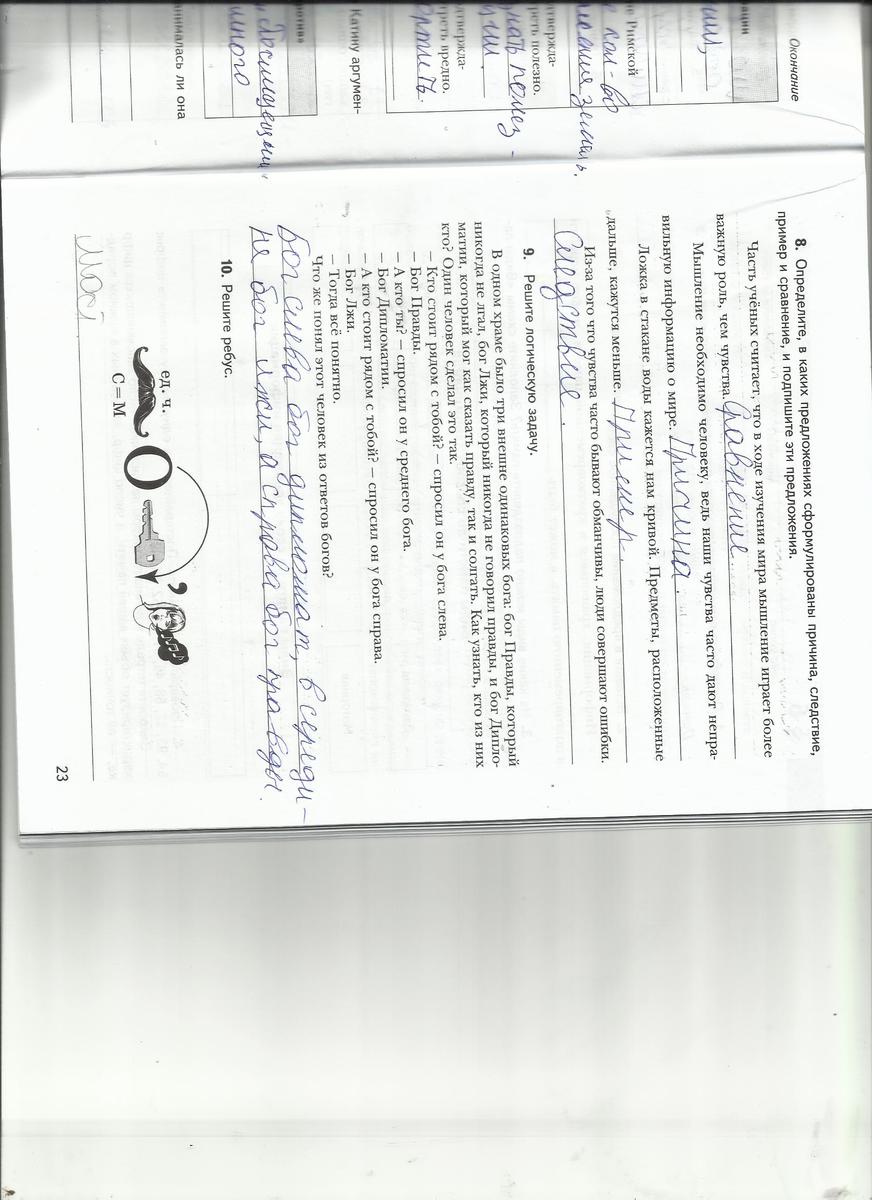 Окончание
ации
е Римской
кол-во
дтвержда-
реть полезно.
дтвержда-
треть вредно.
Катину аргумен-
много
нималась ли она
8. Определите, в каких предложениях сформулированы причина, следствие,
пример и сравнение, и подпишите эти предложения.
Часть учёных считает, что в ходе изучения мира мышление играет более
важную роль, чем чувства. Сравнение.
Мышление необходимо человеку, ведь наши чувства часто дают непра-
вильную информацию о мире. Причина.
Ложка в стакане воды кажется нам кривой. Предметы, расположенные
дальше, кажутся меньше. Пример.
Из-за того что чувства часто бывают обманчивы, люди совершают ошибки.
Следствие.
9. Решите логическую задачу.
В одном храме было три внешне одинаковых бога: бог Правды, который
никогда не лгал, бог Лжи, который никогда не говорил правды, и бог Дипло-
матии, который мог как сказать правду, так и солгать. Как узнать, кто из них
кто? Один человек сделал это так.
– Кто стоит рядом с тобой? – спросил он у бога слева.
– Бог Правды.
– А кто ты? – спросил он у среднего бога.
– Бог Дипломатии.
– А кто стоит рядом с тобой? – спросил он у бога справа.
– Бог Лжи.
– Тогда всё понятно.
Что же понял этот человек из ответов богов?
Бог слева бог дипломат, в середи-
не бог лжи, а справа бог правды.
10. Решите ребус.
ед. ч.
О
,
С = М
23